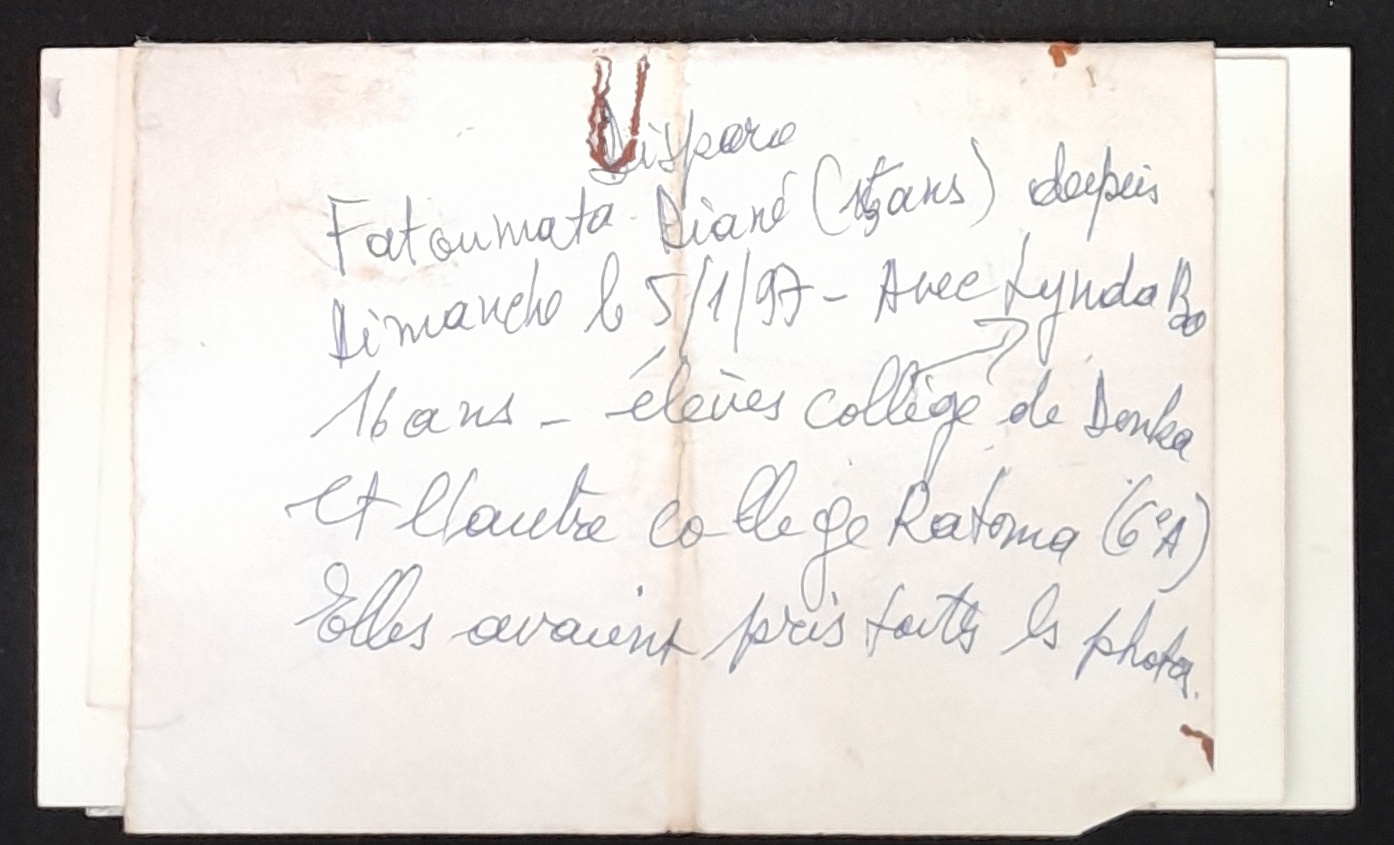 Disparo
Fatoumata Diané (15ans) depuis
Dimanche le 5/1/97 - Avec Lynda Bo
16 ans - élèves collège de Donka
et l'autre college Ratoma (6eA)
Elles avaient pris touts les photos.